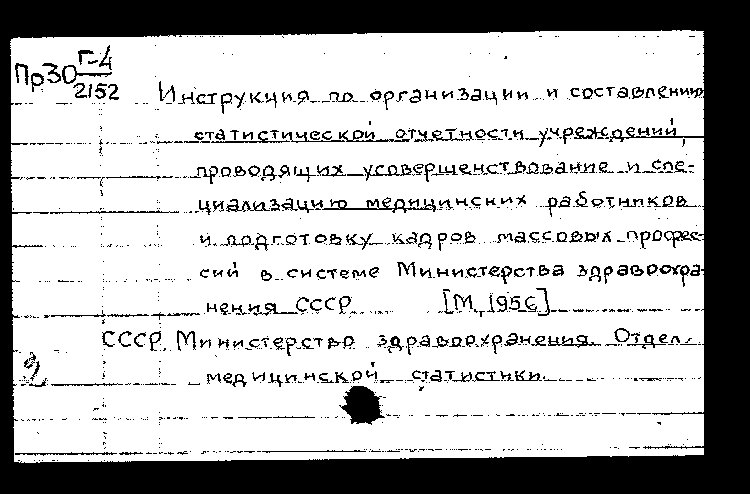 Пр30 Г-4
2152
Инструкция по организации и составлению
статистической отчетности учреждений,
проводящих усовершенствование и спе-
циализацию медицинских работников
и подготовку кадров массовых профес-
сий в системе Министерства здравоохра-
нения СССР [М, 1956]
СССР. Министерство здравоохранения. Отдел
медицинской статистики.
2